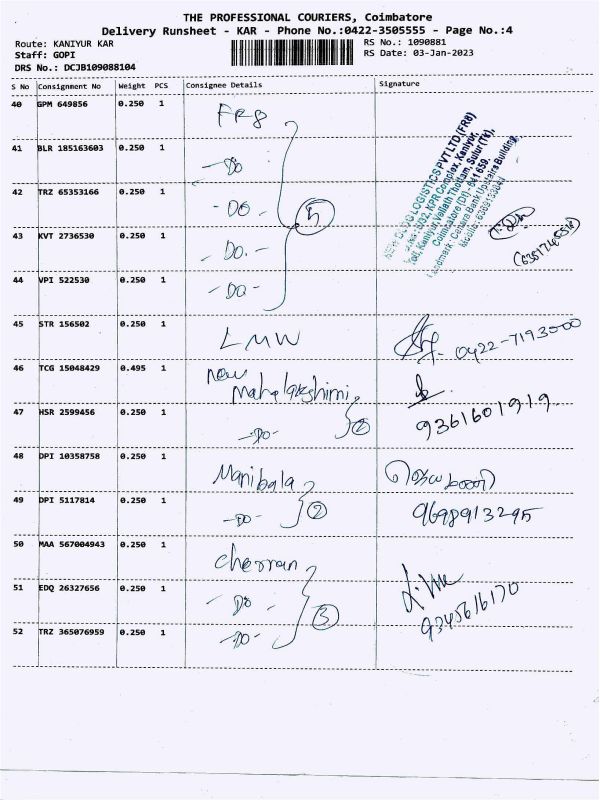 THE PROFESSIONAL COURIERS, Coimbatore
Delivery Runsheet - KAR - Phone No.:0422-3505555 - Page No.:4
Route: KANIYUR KAR
RS No.: 1090881
Staff: GOPI
RS Date: 03-Jan-2023
DRS No.: DCJB109088104
S No Consignment No Weight PCS Consignee Details Signature
40 GPM 649856 0.250 1 FR8
41 BLR 185163603 0.250 1 -Do
42 TRZ 65353166 0.250 1 -Do-
43 KVT 2736530 0.250 1 -Do.-
44 VPI 522530 0.250 1 -Do-
5
LOGISTICS PVT LTD (FR8)
KPR Complex, Kaniyur,
Kaniyur, Thottam, Sulur (Tk),
Coimbatore (Dt) - 641 659.
Landmark: Canara Bank Upstairs Building
45 STR 156502 0.250 1 LMW 0422-7193000
46 TCG 15048429 0.495 1 New Mahalakshimi
47 HSR 2599456 0.250 1 -Do- 2 9361601919
48 DPI 10358758 0.250 1 Manibala
49 DPI 5117814 0.250 1 -Do- 2 9698913295
50 MAA 567004943 0.250 1 Cherran
51 EDQ 26327656 0.250 1 -Do 9345616170
52 TRZ 365076959 0.250 1 -Do- 3